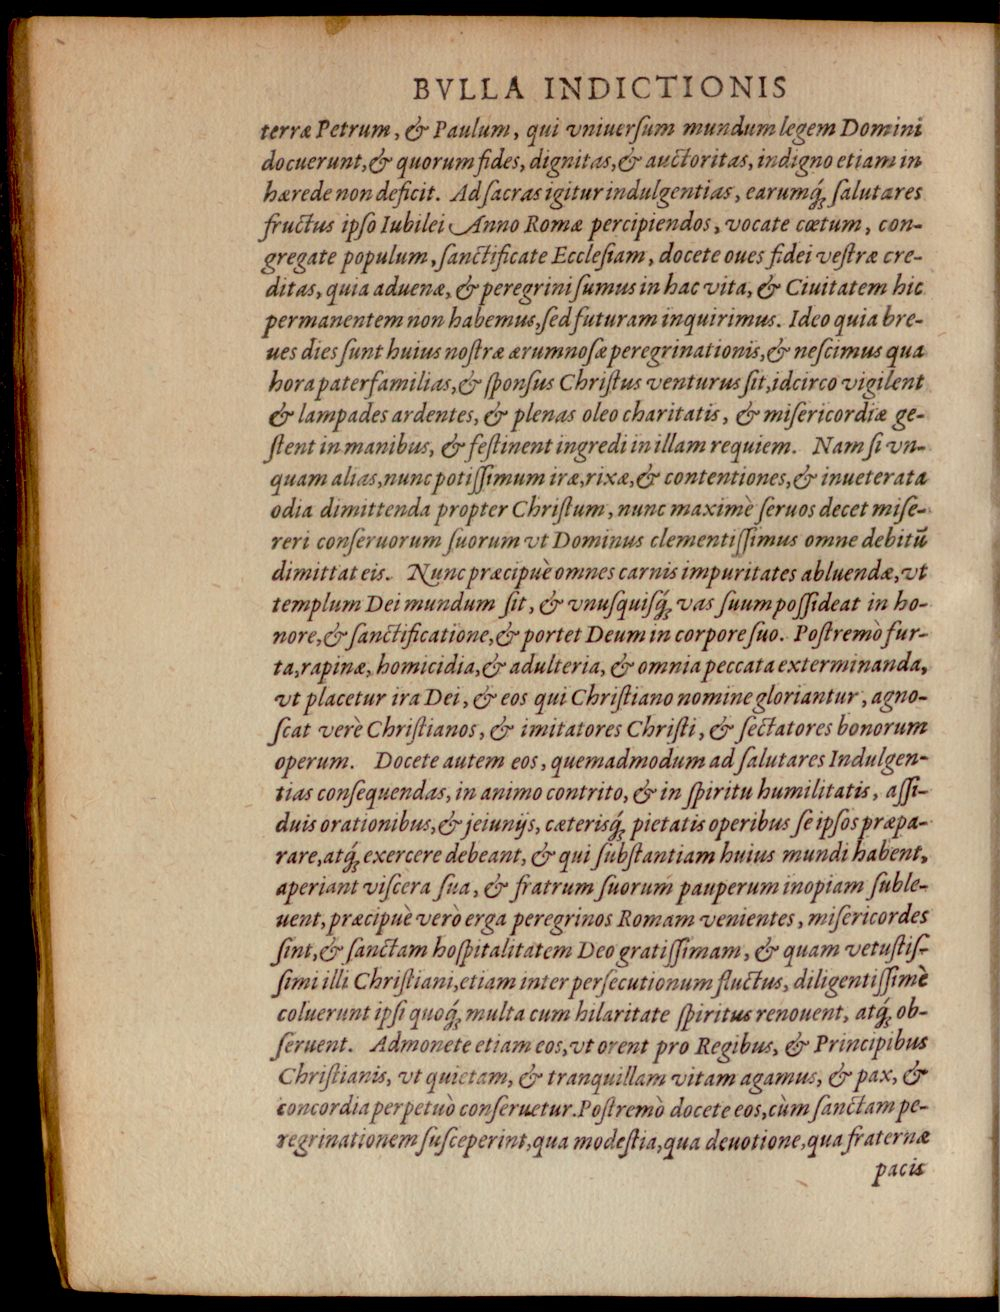 BVLLA INDICTIONIS
terræ Petrum, & Paulum, qui vniuerſum mundum legem Domini
docuerunt, & quorum fides, dignitas, & auctoritas, indigno etiam in
hærede non deficit. Ad ſacras igitur indulgentias, earumq́; ſalutares
fructus ipſo Iubilei Anno Romæ percipiendos, vocate cœtum, con-
gregate populum, ſanctificate Eccleſiam, docete oues fidei veſtræ cre-
ditas, quia aduenæ, & peregrini ſumus in hac vita, & Ciuitatem hic
permanentem non habemus, ſed futuram inquirimus. Ideo quia bre-
ues dies ſunt huius noſtræ ærumnoſæ peregrinationis, & neſcimus qua
hora paterfamilias, & ſponſus Chriſtus venturus ſit, idcirco vigilent
& lampades ardentes, & plenas oleo charitatis, & miſericordiæ ge-
ſtent in manibus, & feſtinent ingredi in illam requiem. Nam ſi vn-
quam alias, nunc potiſſimum iræ, rixæ, & contentiones, & inueterata
odia dimittenda propter Chriſtum, nunc maximè ſeruos decet miſe-
reri conſeruorum ſuorum vt Dominus clementiſſimus omne debitū
dimittat eis. Nunc præcipuè omnes carnis impuritates abluendæ, vt
templum Dei mundum ſit, & vnuſquiſq́; vas ſuum poſſideat in ho-
nore, & ſanctificatione, & portet Deum in corpore ſuo. Poſtremò fur-
ta, rapinæ, homicidia, & adulteria, & omnia peccata exterminanda,
vt placetur ira Dei, & eos qui Chriſtiano nomine gloriantur, agno-
ſcat verè Chriſtianos, & imitatores Chriſti, & ſectatores bonorum
operum. Docete autem eos, quemadmodum ad ſalutares Indulgen-
tias conſequendas, in animo contrito, & in ſpiritu humilitatis, aſſi-
duis orationibus, & jeiunijs, cæteriſq́; pietatis operibus ſe ipſos præpa-
rare, atq́; exercere debeant, & qui ſubſtantiam huius mundi habent,
aperiant viſcera ſua, & fratrum ſuorum pauperum inopiam ſuble-
uent, præcipuè verò erga peregrinos Romam venientes, miſericordes
ſint, & ſanctam hoſpitalitatem Deo gratiſſimam, & quam vetuſtiſ-
ſimi illi Chriſtiani, etiam inter perſecutionum fluctus, diligentiſſimè
coluerunt ipſi quoq́; multa cum hilaritate ſpiritus renouent, atq́; ob-
ſeruent. Admonete etiam eos, vt orent pro Regibus, & Principibus
Chriſtianis, vt quietam, & tranquillam vitam agamus, & pax, &
concordia perpetuò conſeruetur. Poſtremò docete eos, cùm ſanctam pe-
regrinationem ſuſceperint, qua modeſtia, qua deuotione, qua fraternæ
pacis